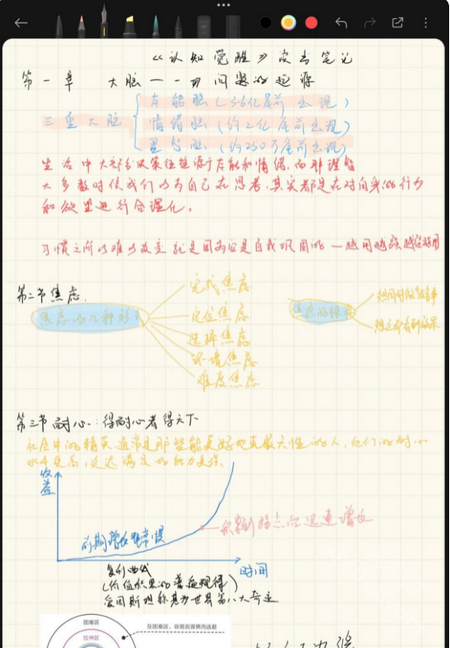 《认知觉醒》读书笔记
第一章 大脑——一切问题的起源
三重大脑
本能脑(3.6亿年前出现)
情绪脑(约2亿年前出现)
理智脑(约250万年前出现)
生活中大部分决策往往源于本能和情绪,而非理智
大多数时候我们以为自己在思考,其实都是在对自身的行为
和欲望进行合理化。
习惯之所以难以改变,就是因为它是自我巩固的—越用越强,越强越用
第二节 焦虑
焦虑的几种形式
完成焦虑
定位焦虑
选择焦虑
环境焦虑
难度焦虑
焦虑的根源
想同时做很多事
想立即看到效果
第三节 耐心:得耐心者得天下
社会中的精英通常是那些能更好地克服天性的人,他们的耐心
水平更高,延迟满足的能力更强
收益
前期增长非常缓慢
到拐点后迅速增长
时间
复利曲线
(价值积累的普遍规律)
爱因斯坦称其为世界第八大奇迹
困难区
拉伸区
在困难区,容易因畏惧而逃避